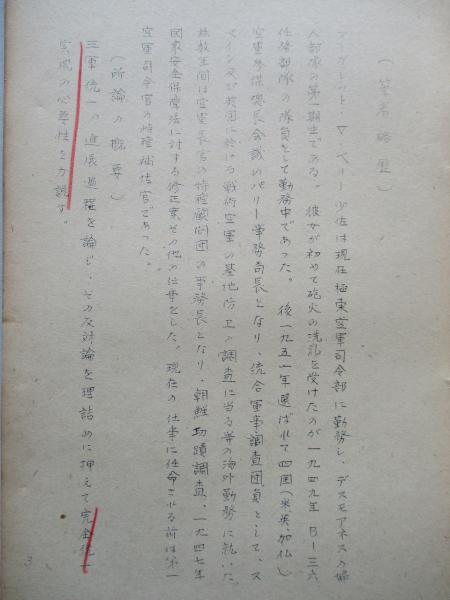 （筆者略歴）
マーグレット・マ・ベリー少佐は現在極東空軍司令部に勤務し、デスモアネスの婦
人部隊の第一期生である。彼女が初めて砲火の洗礼を受けたのが一九四九年B-三六
任務部隊の隊員として勤務中であった。後一九五一年選ばれて四国（米、英、加、仏）
空軍参謀総長会議のパリー事務局長となり、統合軍事調査団員として、ス
ペイン及び英国に於ける戦術空軍の基地防卫の調査に当る等の海外勤務に就いた。
旅教生間は空軍長官の特璮顧問団の事務長となり、朝鮮功蹟調査、一九四七年
国家安全保障法に対する修正案その他の仕事をした。現在の仕事に任命される前は第一
空軍司令官の特璮補佐官であった。
（所論の概要）
三軍統一の進展過程を論じ、その反対論を理詰めに押えて完全統一
実現の必要性を力説す。
3